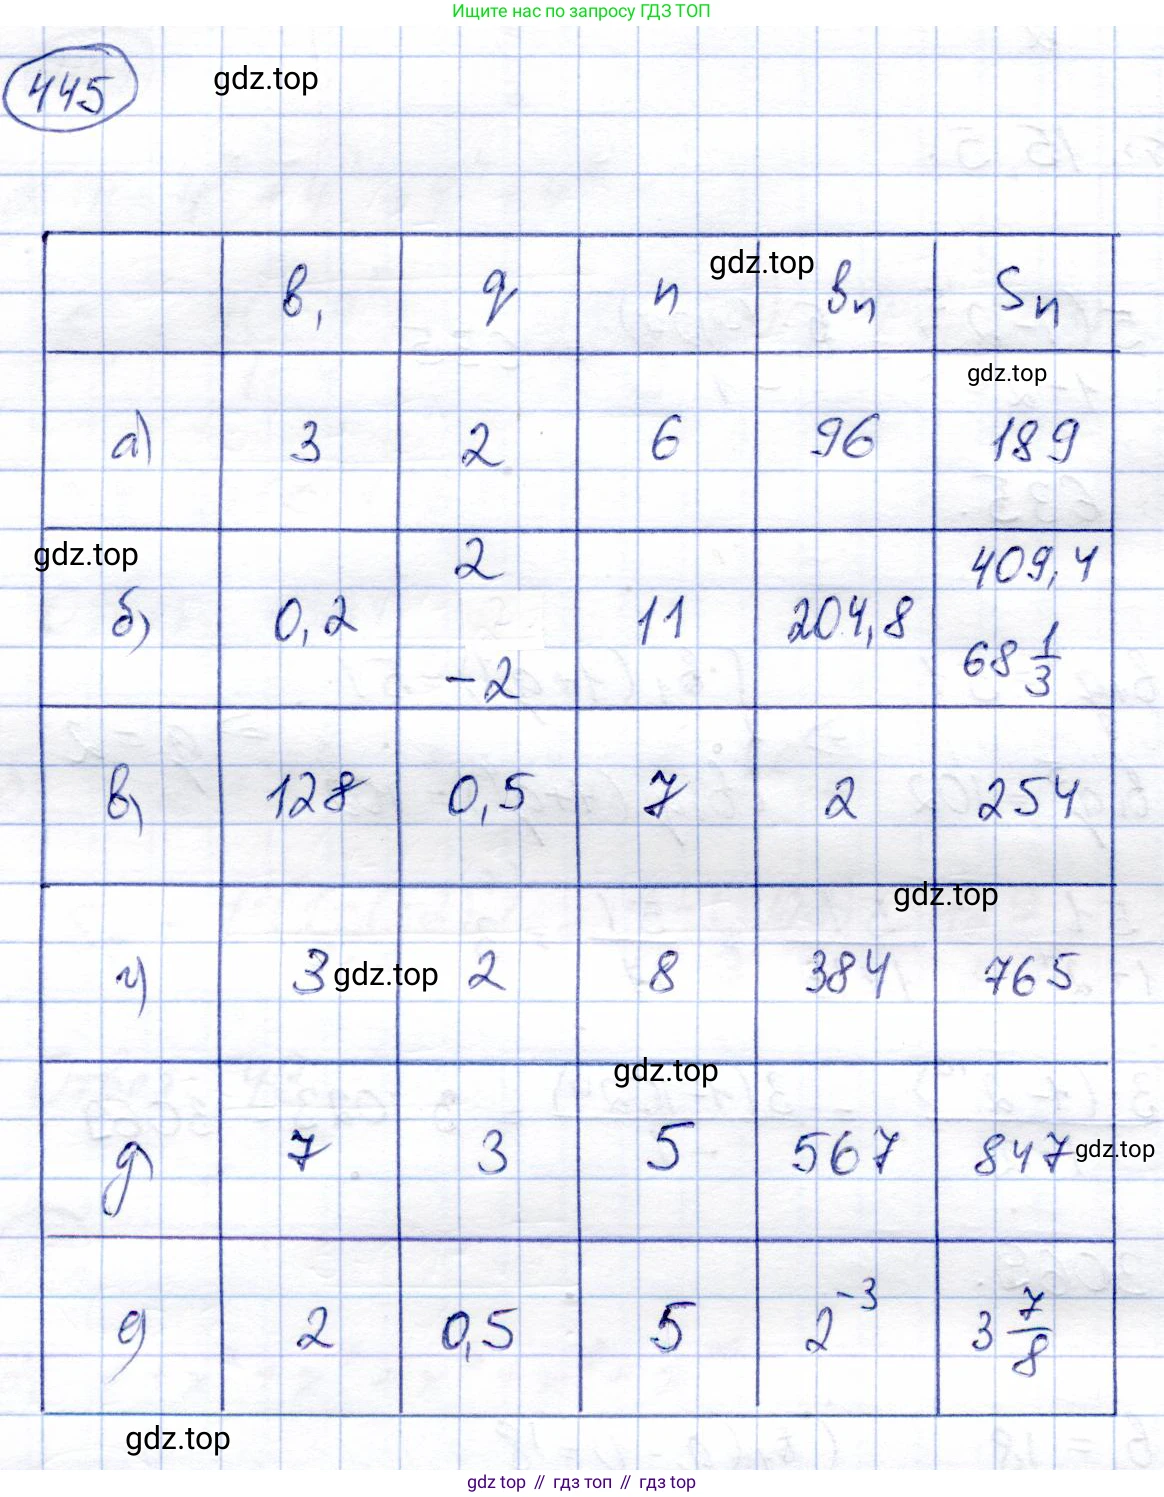 Ищите нас по запросу ГДЗ ТОП
445 gdz.top
b₁ q n gdz.top bₙ Sₙ
gdz.top
а) 3 2 6 96 189
gdz.top 2 409,4
б) 0,2 11 204,8
-2 68 1/3
в) 128 0,5 7 2 254
gdz.top
г) 3 gdz.top 2 8 384 765
gdz.top
д) 7 3 5 567 847 gdz.top
е) 2 0,5 5 2⁻³ 3 7/8
gdz.top
gdz top // гдз топ // гдз top